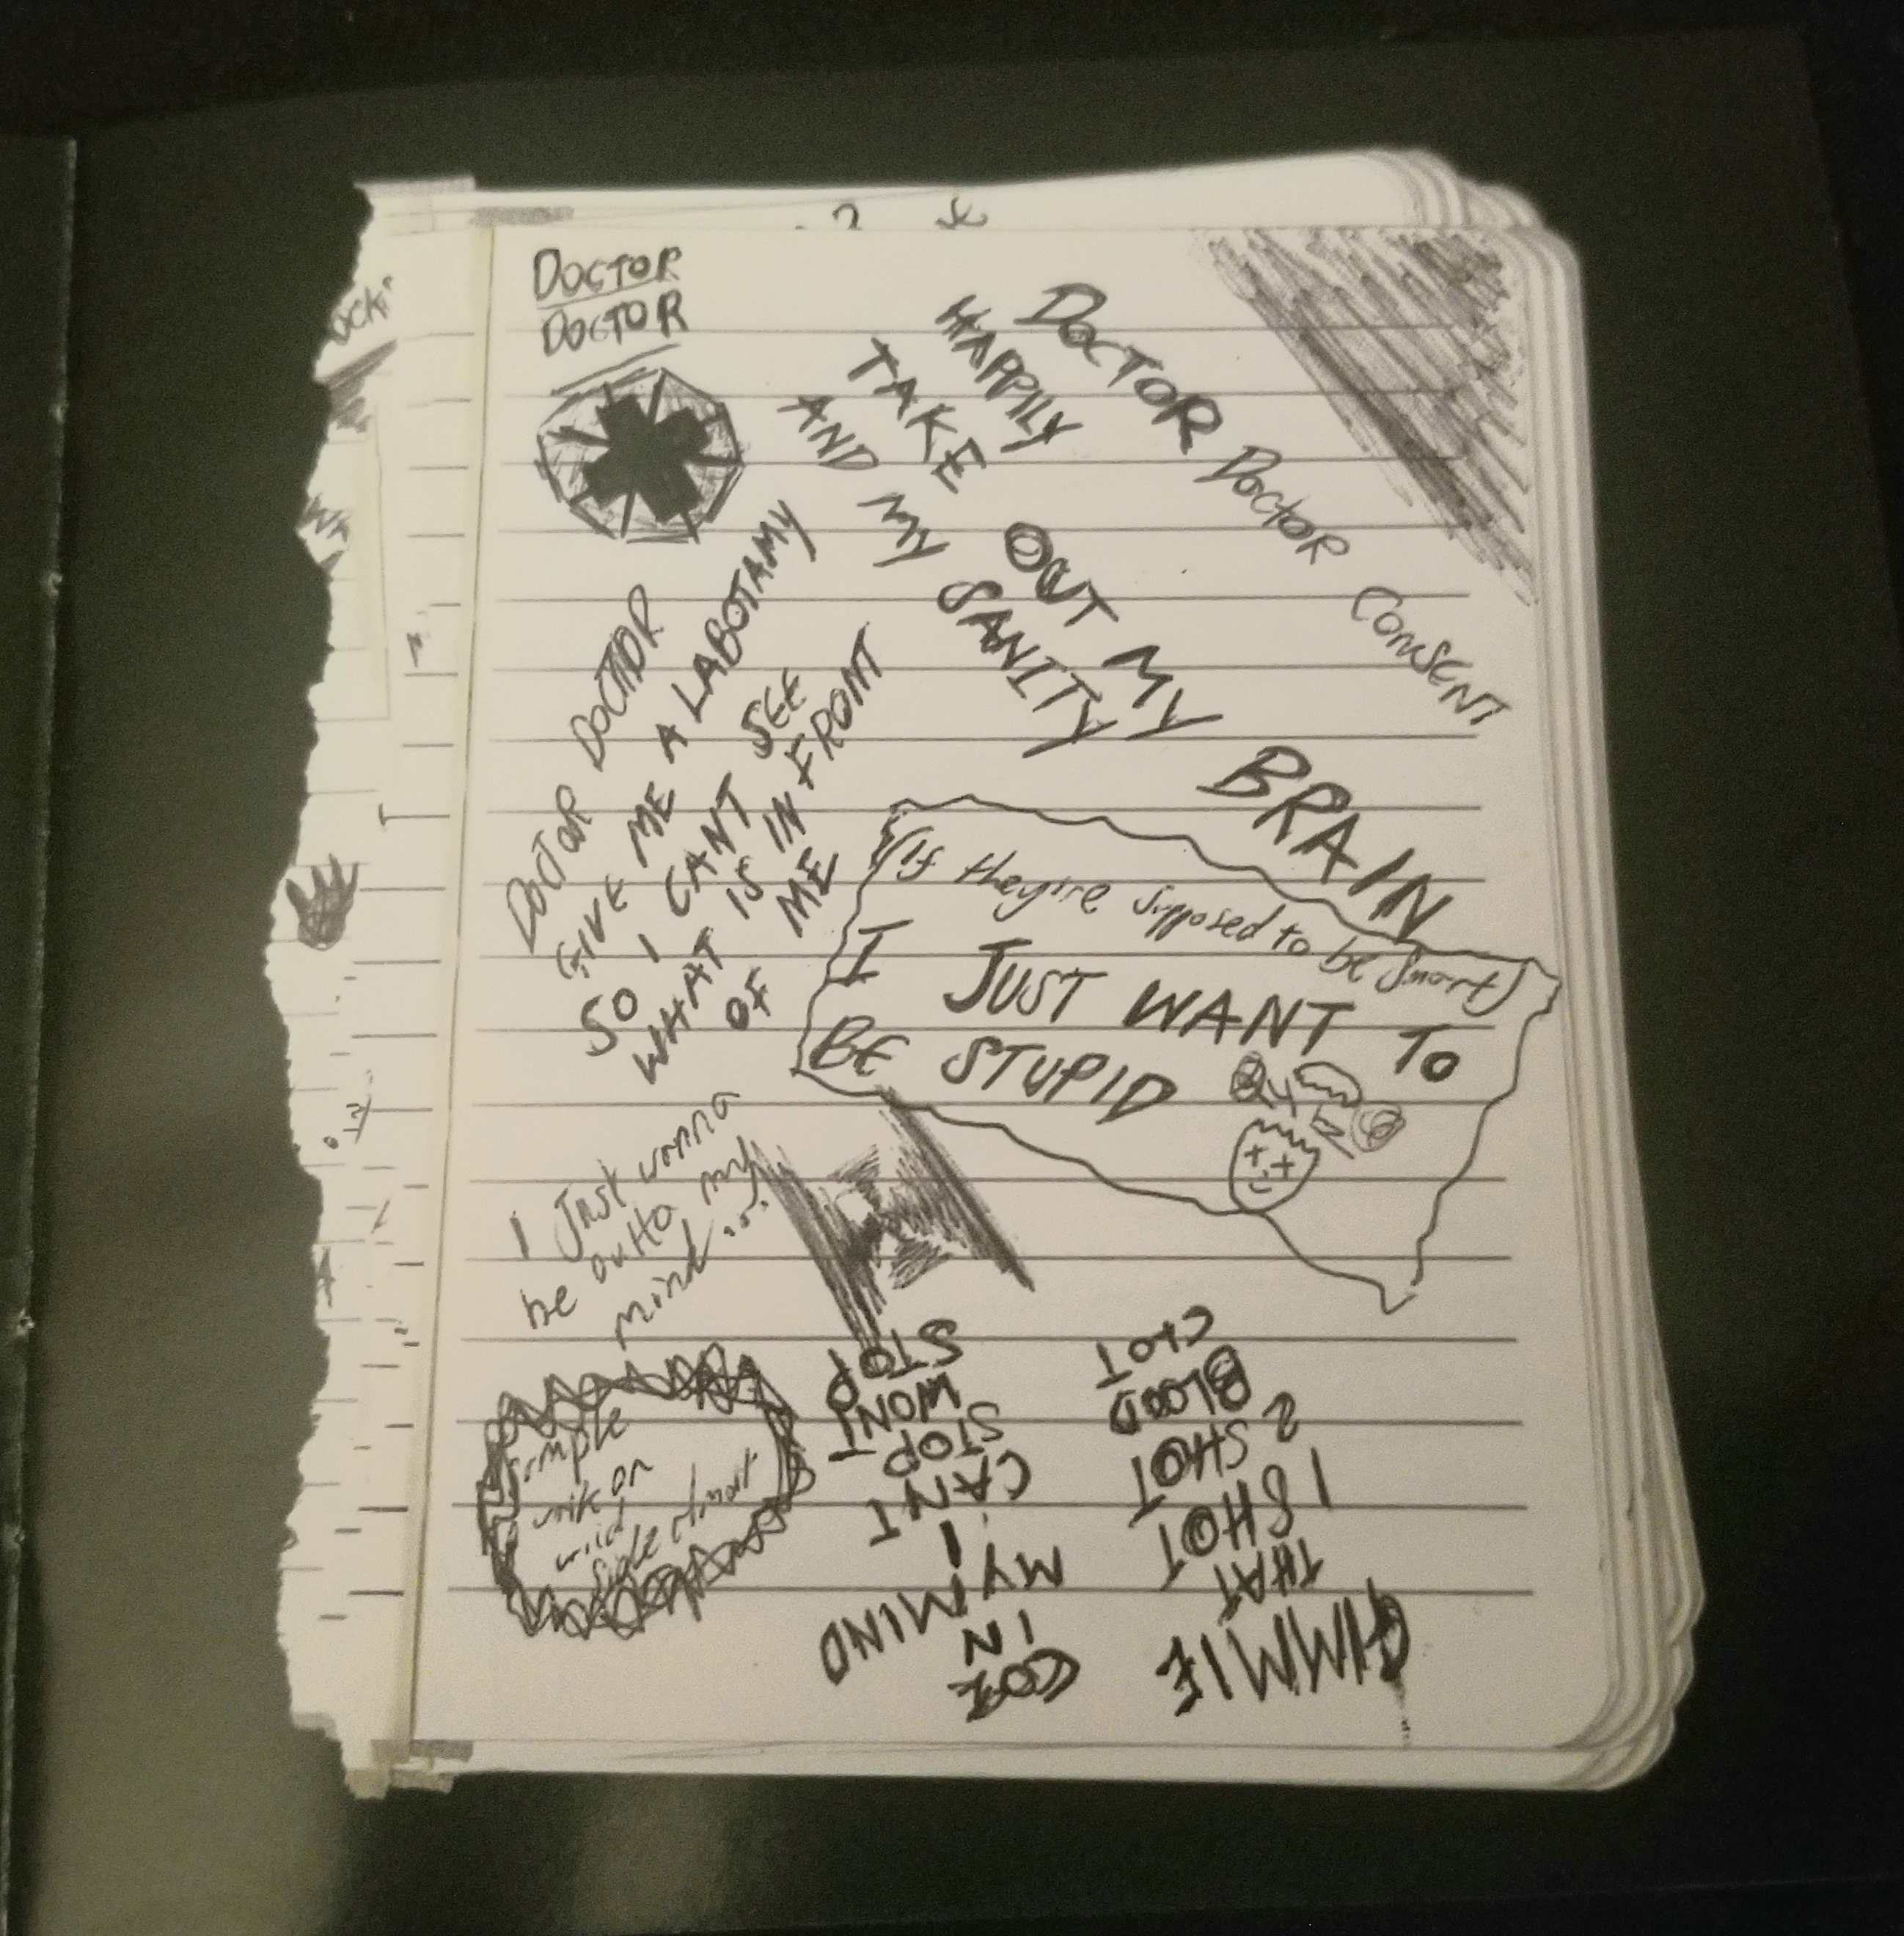 DOCTOR
DOCTOR
DOCTOR DOCTOR CONSENT
HAPPILY
TAKE OUT MY BRAIN
AND MY SANITY
DOCTOR DOCTOR
GIVE ME A LABOTAMY
SO I CANT SEE
WHAT IS IN FRONT
OF ME
(If they're supposed to be smart)
I JUST WANT TO
BE STUPID
I Just wanna
be outta my
mind...
GIMMIE
THAT
1 SHOT
2 SHOT
BLOOD
CLOT
IN
MY MIND
I
CANT
STOP
WONT
STOP